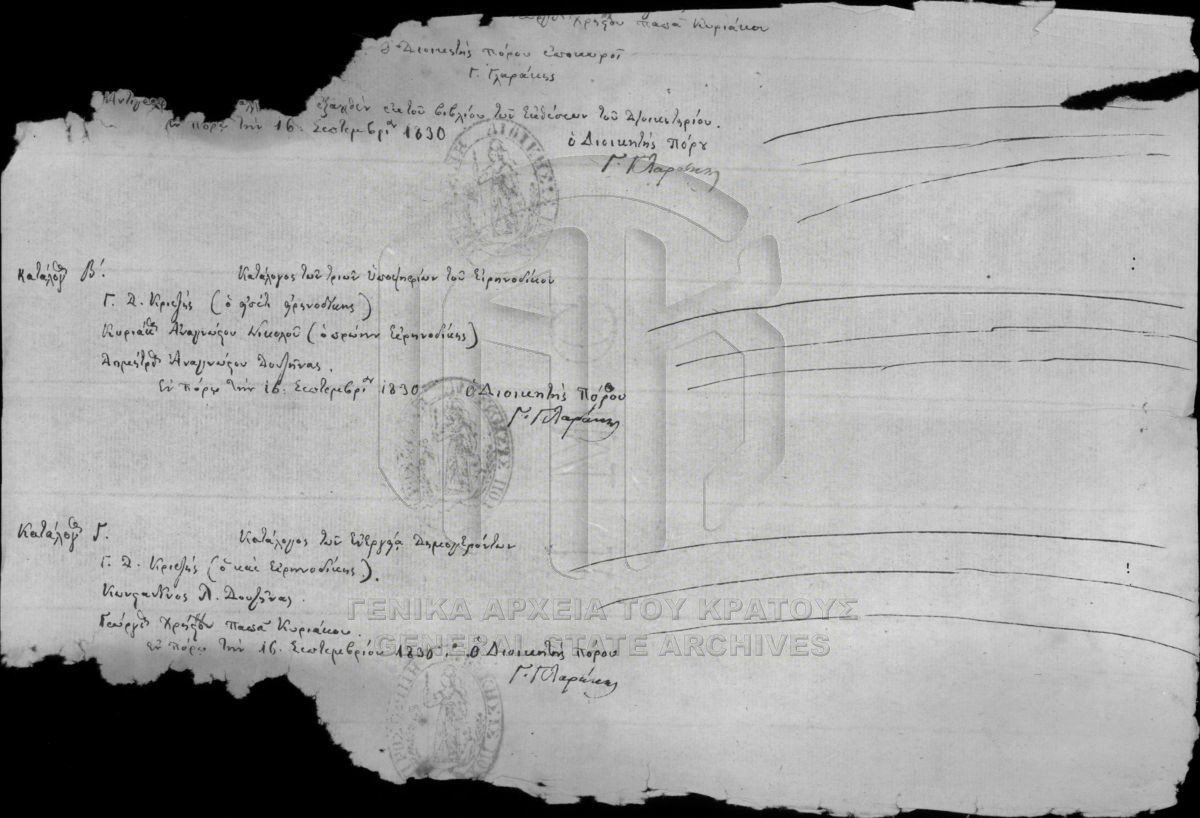 Χρήστου παπα Κυριάκου
ὁ Διοικητής πόρου ἐπικυροῖ
Γ. Γλαράκης
ἐκ τοῦ βιβλίου τῶν ἐκθέσεων τοῦ Διοικητηρίου.
ἐν πόρῳ τὴν 16. Σεπτεμβρίου 1830 ὁ Διοικητὴς πόρου
Γ. Γλαράκης
Κατάλογος Β'. Κατάλογος τῶν τριῶν ὑποψηφίων τοῦ Εἰρηνοδίκου
Γ. Δ. Κριεζής
Κυριάκος Ἀναγνώστου Νικολοῦ (ὁ πρώην Εἰρηνοδίκης)
Δημήτριος Ἀναγνώστου Δουζῆνας.
Ἐν πόρῳ τὴν 16. Σεπτεμβρίου 1830 ὁ Διοικητὴς πόρου
Γ. Γλαράκης
Κατάλογος Γ. Κατάλογος τῶν Δημογερόντων
Γ. Δ. Κριεζής (ὁ καὶ Εἰρηνοδίκης).
Κωνσταντῖνος Λ. Δουζῆνας.
Γεώργιος Χρήστου παπα Κυριάκου.
ἐν πόρῳ τὴν 16. Σεπτεμβρίου 1830. ὁ Διοικητὴς πόρου
Γ. Γλαράκης
ΓΕΝΙΚΑ ΑΡΧΕΙΑ ΤΟΥ ΚΡΑΤΟΥΣ
GENERAL STATE ARCHIVES